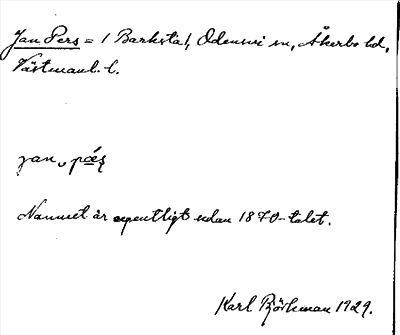 Jan Pers = 1 Barksta, Odensvi sn, Åkerbo hd,
Västmanl. l.
Nannet är egentligt sedan 1870-talet.
Karl Björkman 1929.